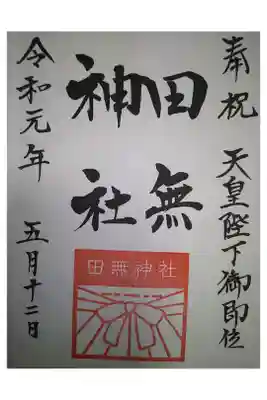 奉祝 天皇陛下御即位
田無
神社
田無神社
令和元年 五月十二日